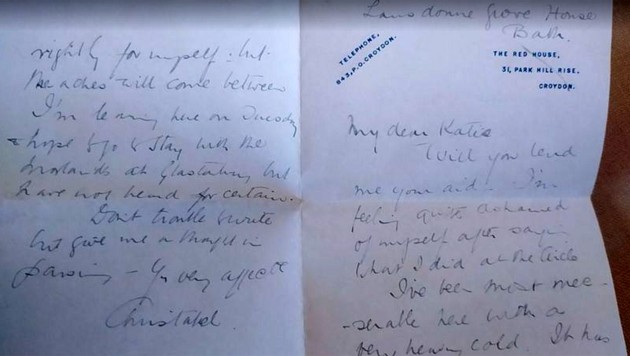 Lansdowne Grove House
Bath.
TELEPHONE,
843, P.O. CROYDON.
THE RED HOUSE,
31, PARK HILL RISE,
CROYDON.
My dear Katie
Will you lend
me your aid. I'm
feeling quite ashamed
of myself after saying
what I did at the Circle
I've been most mee-
-serable here with a
very heavy cold. It has
rightly for myself - but
the aches will come between
I'm leaving here on Tuesday
& hope to go & stay with the
Morlands at Glastonbury but
have not heard for certain.
Don't trouble to write
but give me a thought in
passing - Yr very affecte
Christabel.